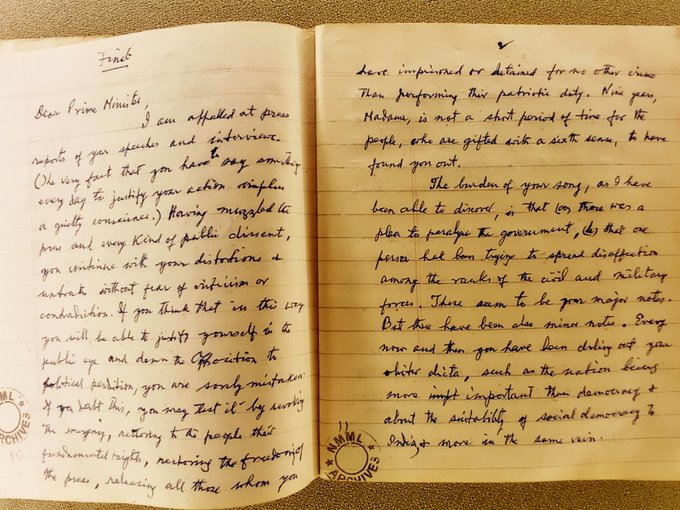 Final
Dear Prime Minister,
I am appalled at press
reports of your speeches and interviews.
(The very fact that you have to say something
every day to justify your action implies
a guilty conscience.) Having muzzled the
press and every kind of public dissent,
you continue with your distortions &
untruths without fear of criticism or
contradiction. If you think that in this way
you will be able to justify yourself in the
public eye and damn the Opposition to
political perdition, you are sorely mistaken.
If you doubt this, you may test it by revoking
the emergency, restoring to the people their
fundamental rights, restoring the freedom of
the press, releasing all those whom you
NMML
ARCHIVES
10
2
have imprisoned or detained for no other crime
than performing their patriotic duty. Nine years,
Madame, is not a short period of time for the
people, who are gifted with a sixth sense, to have
found you out.
The burden of your song, as I have
been able to discover, is that (a) there was a
plan to paralyse the government, (b) that one
person had been trying to spread disaffection
among the ranks of the civil and military
forces. These seem to be your major notes.
But there have been also minor notes. Every
now and then you have been doling out your
obiter dicta, such as the nation being
more important than democracy &
about the suitability of social democracy to
India & more in the same vein.
11
NMML
ARCHIVES